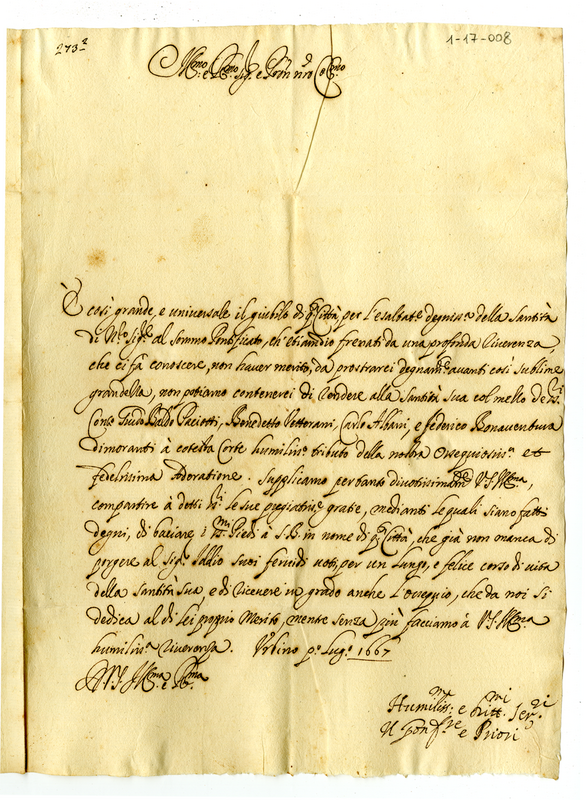 273.2
1-17-008
Ill.mo e R.mo Sig.r e Pron nro Col.mo
È così grande, e universale il giubilo di q.ta Città, per l'esaltat.e degniss.a della Santità
di N.ro Sig.re al Sommo Pontificato, ch'etiandio frenati da una profonda riverenza,
che ci fà conoscere, non haver merito, da prostrarci degnam.te avanti così sublime
grandezza, non potiamo contenerci di rendere alla Santità Sua col mezzo de
Con.ti Guido Baldo Paciotti, Benedetto Vetterani, Carlo Albani, e federico Bonaventura
dimoranti à cotesta Corte humiliss.o tributo della nostra Ossequiosiss.a et
fedelissima Adoratione. Supplicamo pertanto divotissimam.te V.S. Ill.ma,
compartire à detti le sue pregiatiss.e gratie, medianti le quali siano fatti
degni, di baciare i S.mi Piedi à S.B. in nome di q.ta Città, che già non manca di
porgere al Sig.r Iddio suoi fervidi voti, per un lungo, e felice corso di vita
della Santità Sua, e di ricevere in grado anche l'ossequio, che da noi si
dedica al di lei proprio Merito, mentre senza più facciamo à V.S. Ill.ma
humiliss.a riverenza. Urbino p.o Lug.o 1667
D V.S. Ill.ma e R.ma
Humiliss.mi e Ser.ri
Il Gonf.re e Priori